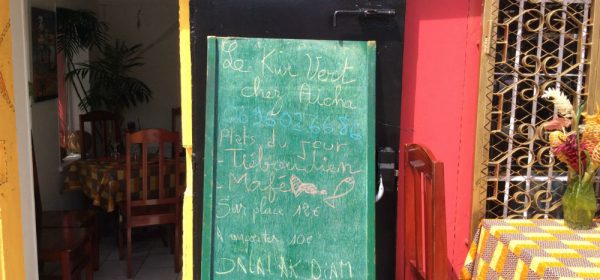 Le Kiwi Vert
chez Aïcha
Plats du jour
- Tiéboudien
- Mafé
Sur place 12€
A emporter 10€
DALAL AK DIAM